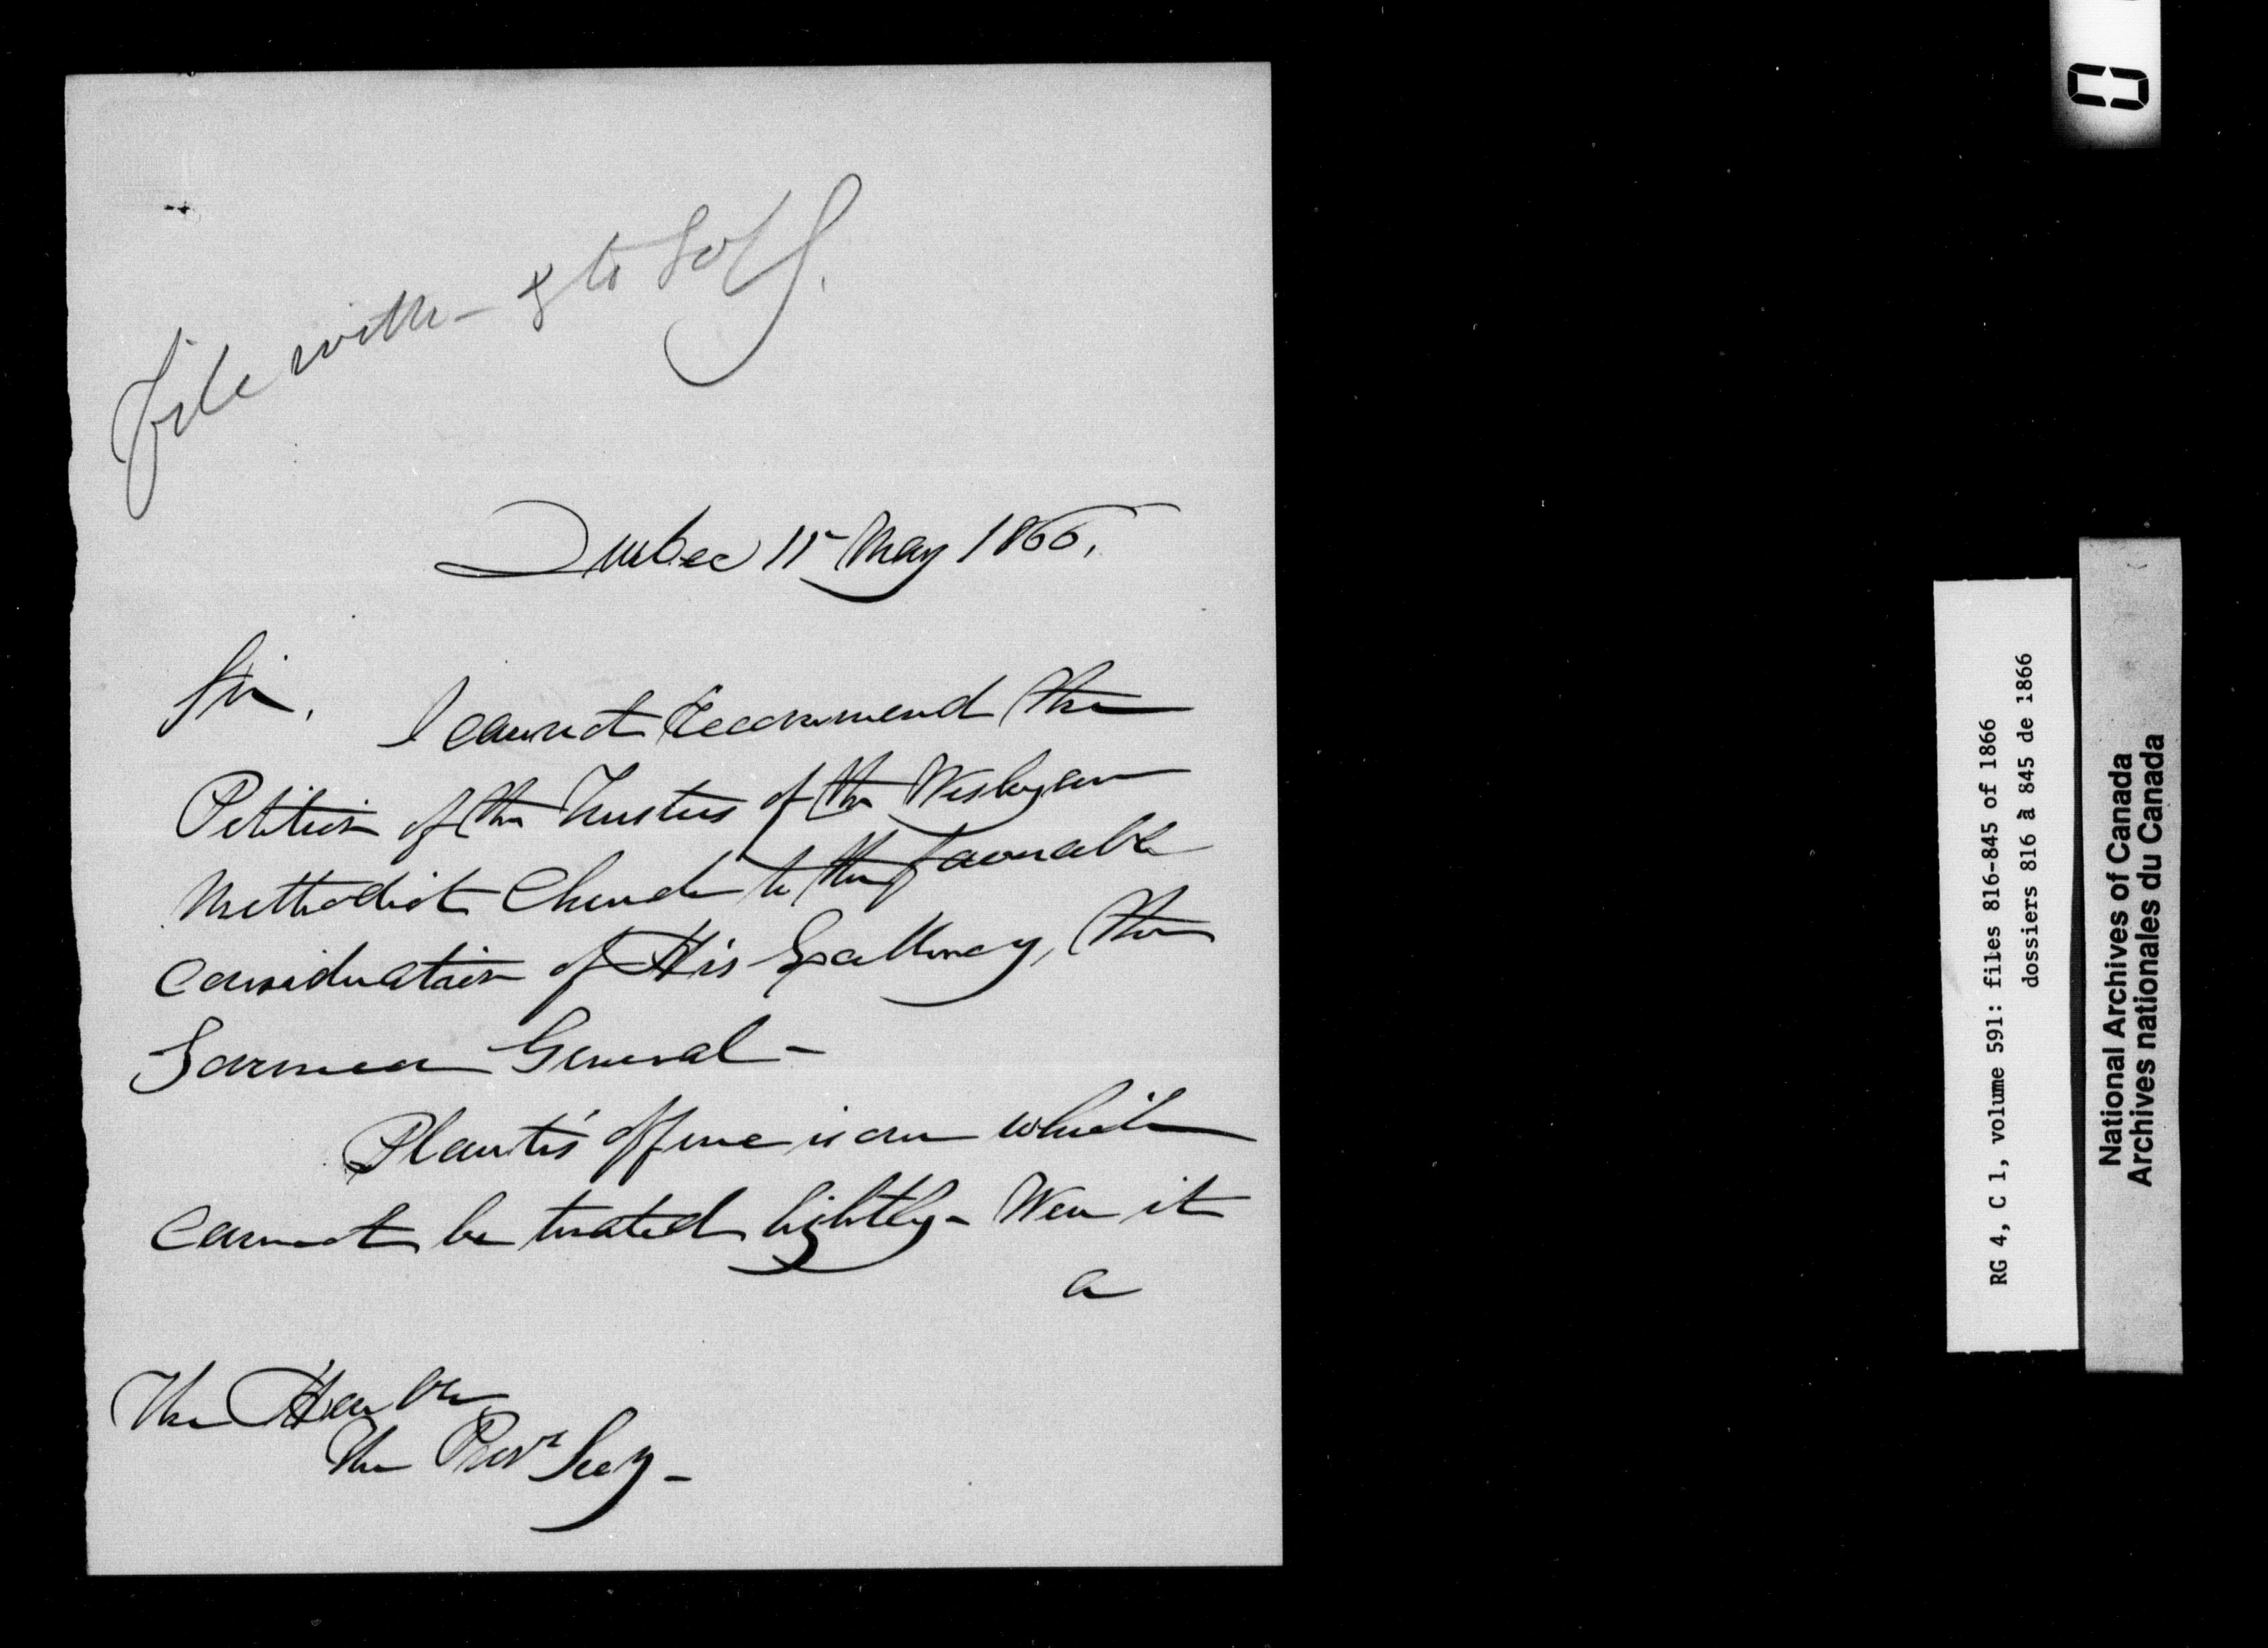 File with - & to
Quebec 15 May 1866.
Sir,
I cannot recommend the
Petition of the Trustees of the Wesleyan
Methodist Church to the favorable
consideration of His Excellency, the
Governor General -
Plante's offence is one which
cannot be treated lightly - Were it
a
The Honble
The Provl Secy -
RG 4, C 1, volume 591: files 816-845 of 1866
dossiers 816 à 845 de 1866
National Archives of Canada
Archives nationales du Canada